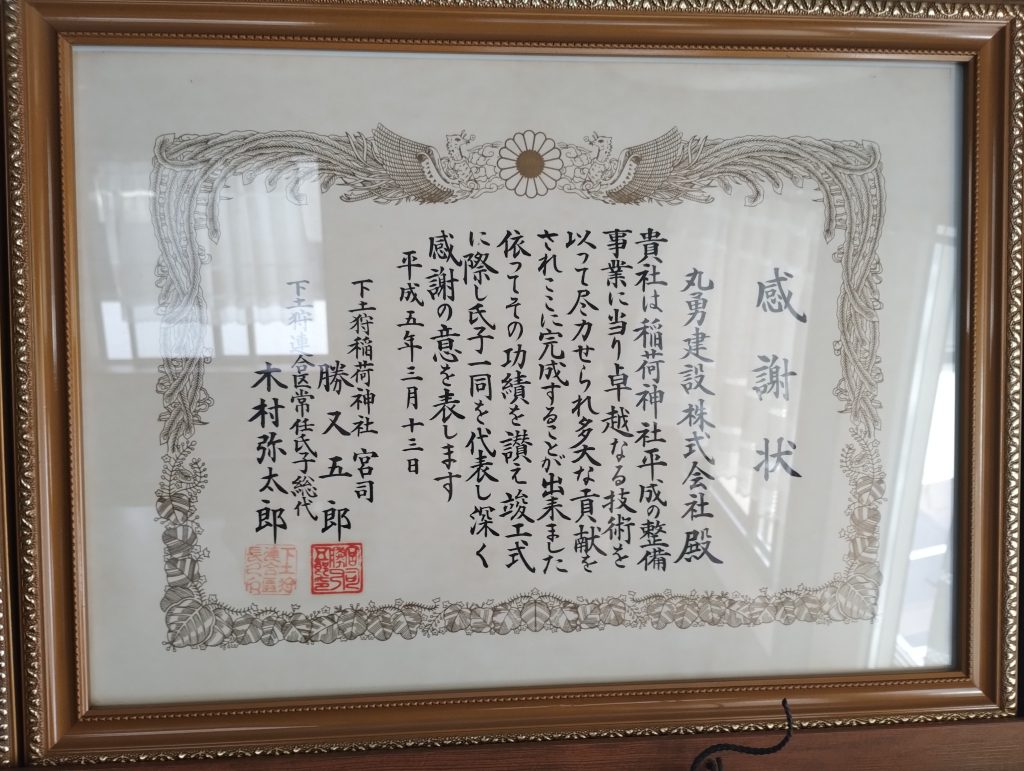 感謝状
丸勇建設株式会社殿
貴社は稲荷神社平成の整備
事業に当り卓越なる技術を
以って尽力せられ多大な貢献を
されここに完成することが出来ました
依ってその功績を讃え竣工式
に際し氏子一同を代表し深く
感謝の意を表します
平成五年三月十三日
下土狩稲荷神社 宮司
勝又五郎
下土狩連合区常任氏子総代
木村弥太郎